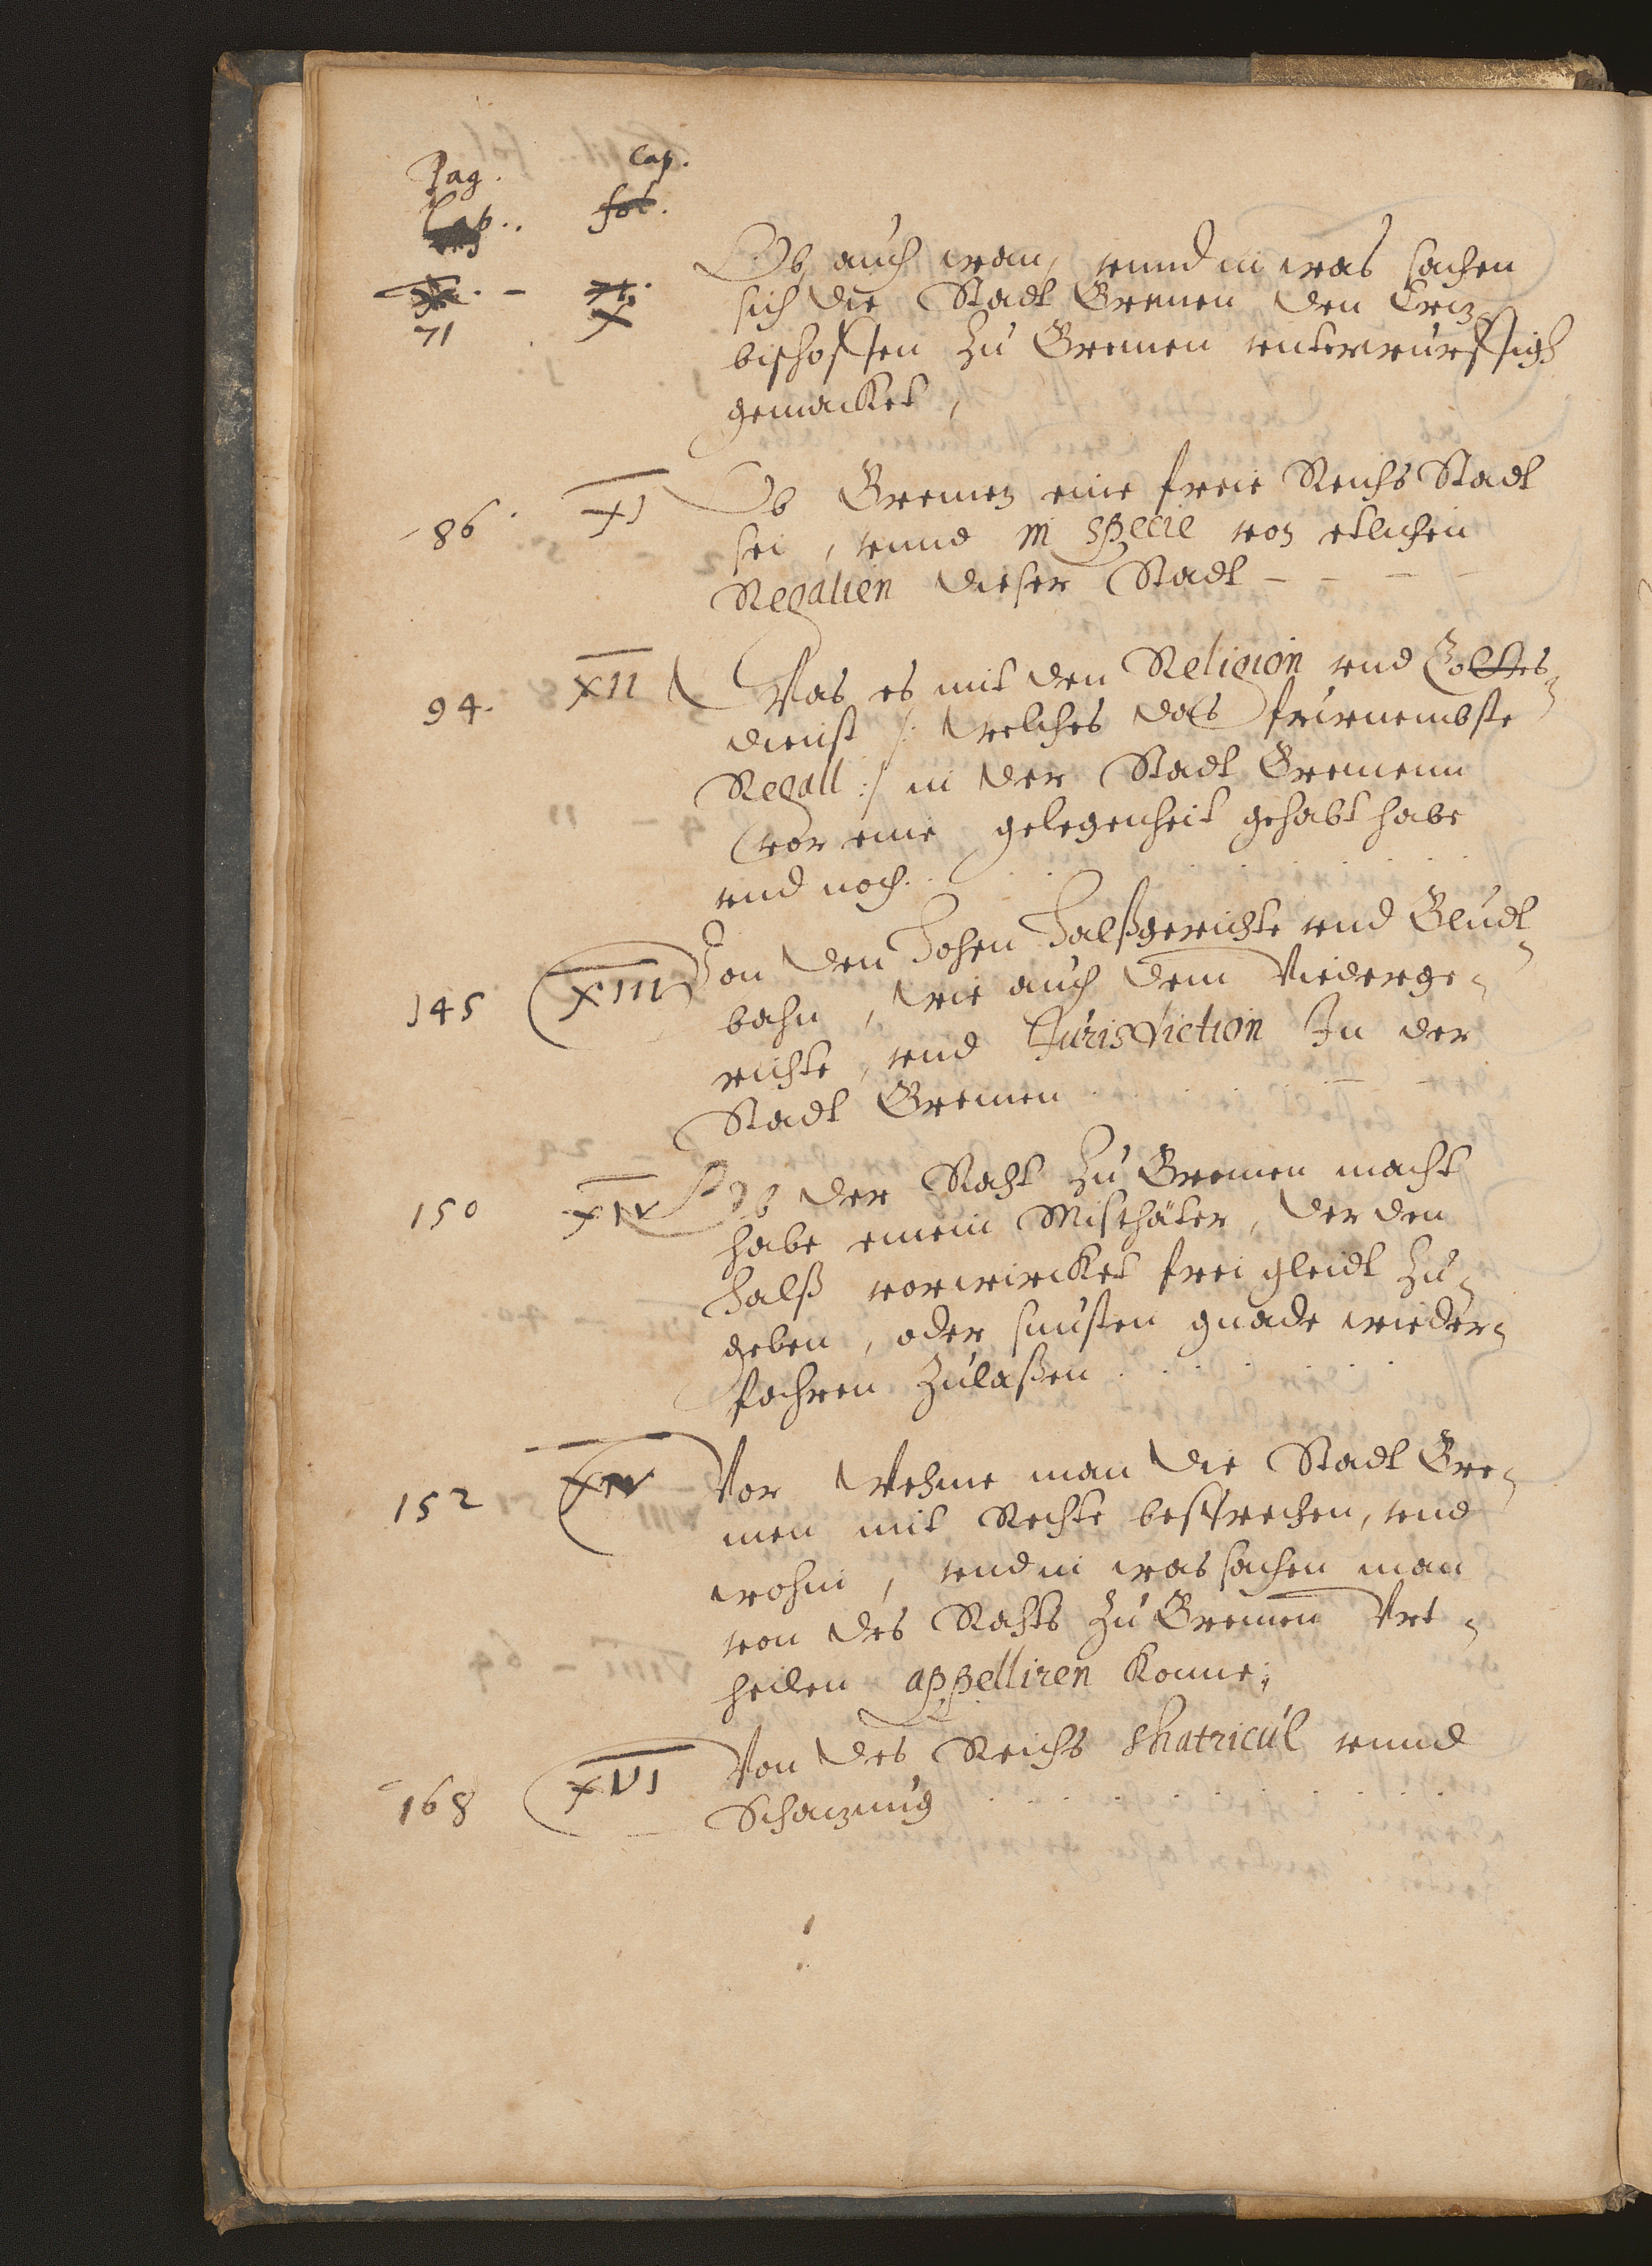 Pag. Cap.
Cap.. fol.
Ob auch wan, vnnd in was sachen
sich die Stadt Bremen den Ertz
71 X
bischoffen zu Bremen vnterwürffigh
gemacket,
86. XI Ob Bremen eine freie Reichs Stadt
sei, vnnd in specie von etlichen
Regalien dieser Stadt - - - -
94. XII Was es mit den Religion vnd Gottes-
dienst /: welches das fürnembste
Regall :/ in der Stadt Bremenn
vor eine gelegenheit gehabt habe
vnd noch . .
145 XIII Von den Hohen Halßgerichte vnd Bludt
bahn, wie auch dem Niederge-
richte, vnd Jurisdiction In der
Stadt Bremen . . . . .
150 XIV Ob der Raht zu Bremen macht
habe einem Misthäter, der den
Halß vorwircket frei gleidt zu-
geben, oder sunsten gnade wieder-
fahren zulaßen . . . . .
152 XV Vor Wehme man die Stadt Bre-
men mit Rechte besprechen, vnd
wohin, vnd in was sachen man
von des Rahts zu Bremen Vrt-
heilen appelliren konne;
168 XVI Von des Reichs Matricul vnnd
Schatzung . . . . . . . .